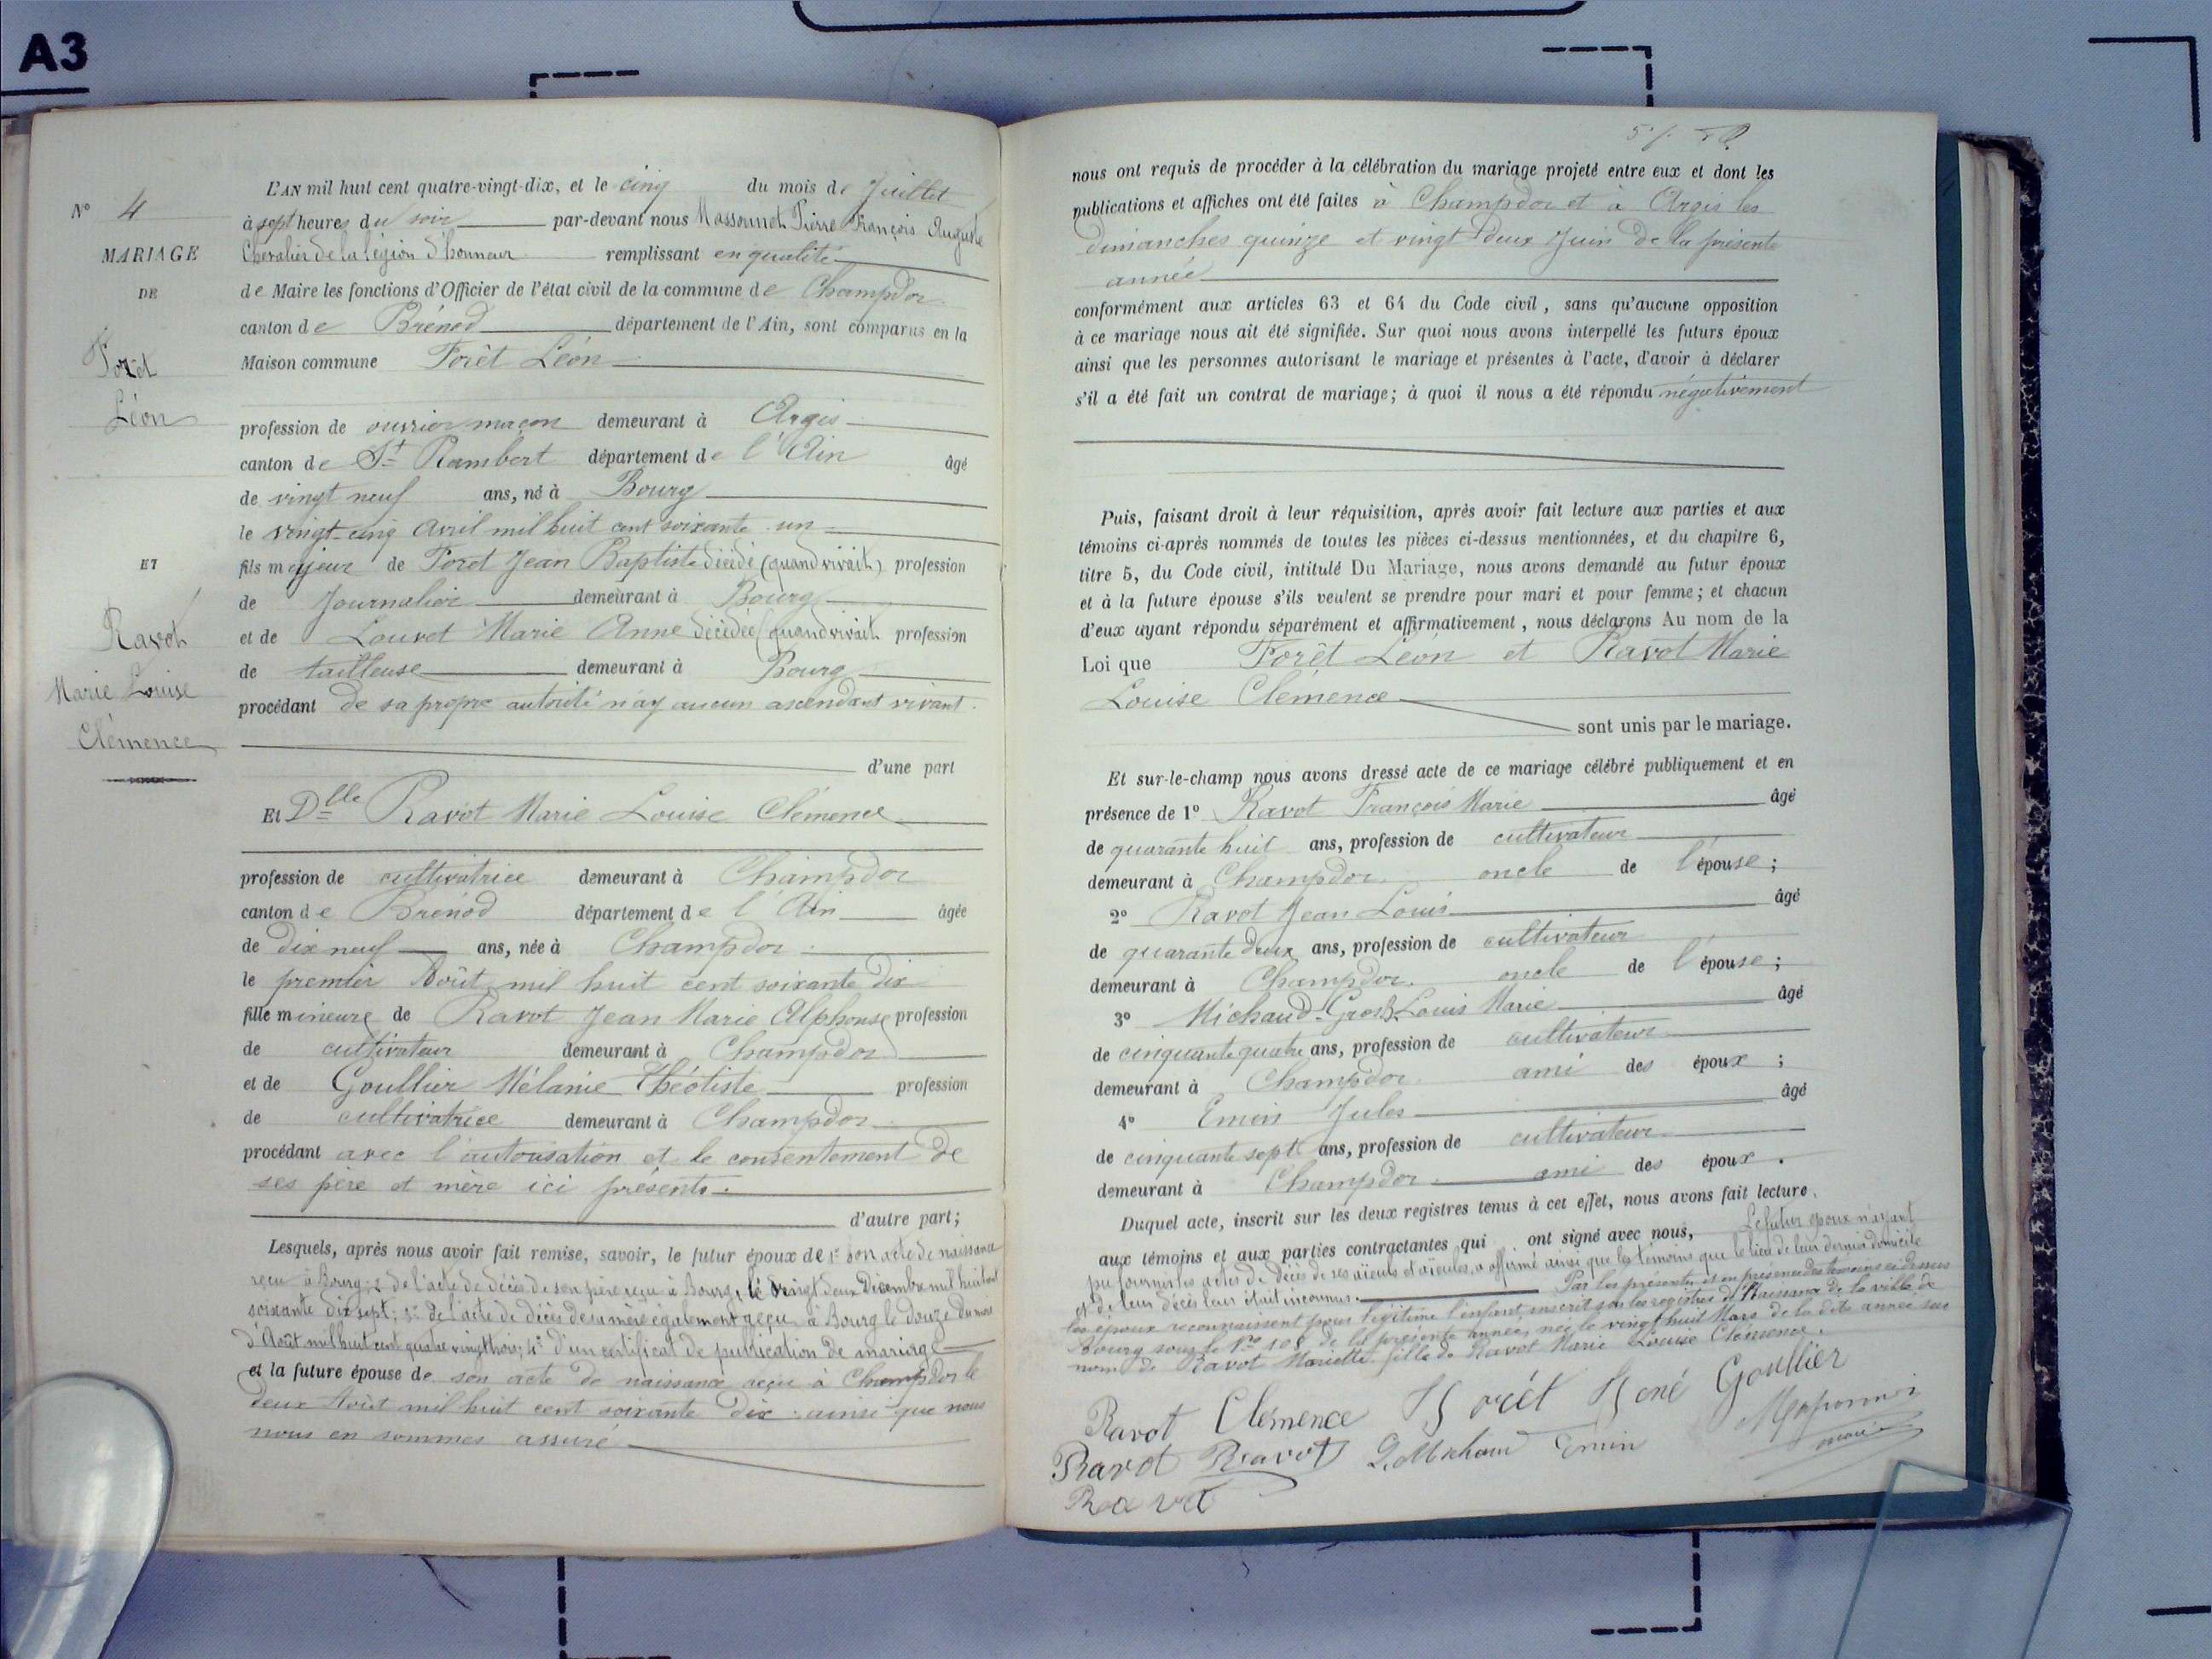 A3
L'AN mil huit cent quatre-vingt-dix, et le cinq du mois de Juillet
N° 4
à sept heures du soir par-devant nous Massonnet Pierre François Auguste
MARIAGE
Chevalier de la légion d'honneur remplissant en qualité
DE
de Maire les fonctions d'Officier de l'état civil de la commune de Champdor
canton de Brénod département de l'Ain, sont comparus en la
Forêt
Maison commune Forêt Léon
Léon
profession de ouvrier maçon demeurant à Argis
canton de St Rambert département de l'Ain âgé
de vingt neuf ans, né à Bourg
le vingt-cinq Avril mil huit cent soixante un
ET
fils majeur de Foret Jean Baptiste décédé (quand vivait) profession
de Journalier demeurant à Bourg
Ravot
et de Louvet Marie Anne décédée (quand vivait profession
de tailleuse demeurant à Bourg
Marie Louise
procédant de sa propre autorité n'ay aucun ascendant vivant.
Clémence
d'une part
Et Dlle Ravot Marie Louise Clémence
profession de cultivatrice demeurant à Champdor
canton de Brenod département de l'Ain âgée
de dix neuf ans, née à Champdor
le premier Août mil huit cent soixante dix
fille mineure de Ravot Jean Marie Alphonse profession
de cultivateur demeurant à Champdor
et de Goullier Mélanie Théotiste profession
de cultivatrice demeurant à Champdor
procédant avec l'autorisation et le consentement de
ses père et mère ici présents.
d'autre part;
Lesquels, après nous avoir fait remise, savoir, le futur époux de 1° son acte de naissance
reçu à Bourg; 2° de l'acte de décès de son père reçu à Bourg, le vingt deux Décembre mil huit cent
soixante dix sept; 3° de l'acte de décès de sa mère également reçu à Bourg le douze du mois
d'Août mil huit cent quatre vingt trois; 4° d'un certificat de publication de mariage
et la future épouse de son acte de naissance reçu à Champdor le
deux Août mil huit cent soixante dix ainsi que nous
nous en sommes assuré
nous ont requis de procéder à la célébration du mariage projeté entre eux et dont les
publications et affiches ont été faites à Champdor et à Argis les
dimanches quinze et vingt deux Juin de la présente
année
conformément aux articles 63 et 64 du Code civil, sans qu'aucune opposition
à ce mariage nous ait été signifiée. Sur quoi nous avons interpellé les futurs époux
ainsi que les personnes autorisant le mariage et présentes à l'acte, d'avoir à déclarer
s'il a été fait un contrat de mariage; à quoi il nous a été répondu négativement
Puis, faisant droit à leur réquisition, après avoir fait lecture aux parties et aux
témoins ci-après nommés de toutes les pièces ci-dessus mentionnées, et du chapitre 6,
titre 5, du Code civil, intitulé Du Mariage, nous avons demandé au futur époux
et à la future épouse s'ils veulent se prendre pour mari et pour femme; et chacun
d'eux ayant répondu séparément et affirmativement, nous déclarons Au nom de la
Loi que Forêt Léon et Ravot Marie
Louise Clémence
sont unis par le mariage.
Et sur-le-champ nous avons dressé acte de ce mariage célébré publiquement et en
présence de 1° Ravot François Marie âgé
de quarante huit ans, profession de cultivateur
demeurant à Champdor. oncle de l'épouse;
2° Ravot Jean Louis âgé
de quarante deux ans, profession de cultivateur
demeurant à Champdor. oncle de l'épouse;
3° Michaud-Gros Louis Marie âgé
de cinquante quatre ans, profession de cultivateur
demeurant à Champdor. ami des époux;
4° Emin Jules âgé
de cinquante sept ans, profession de cultivateur
demeurant à Champdor. ami des époux.
Duquel acte, inscrit sur les deux registres tenus à cet effet, nous avons fait lecture
aux témoins et aux parties contractantes qui ont signé avec nous, Le futur époux n'ayant
pu fournir les actes de décès de ses aïeuls et aïeules, a affirmé ainsi que les témoins que le lieu de leur dernier domicile
et de leur décès leur était inconnus. Par les présentes et en présence des témoins ci dessus
les époux reconnaissent pour légitime l'enfant inscrit sur les registres de Naissance de la ville de
Bourg sous le N° 108 de la présente année, née le vingt huit Mars de la dite année sous
nom de Ravot Mariette fille de Ravot Marie Louise Clémence.
Ravot Clémence Forêt Goullier
Ravot Ravot Michaud Emin
maire
Ravot